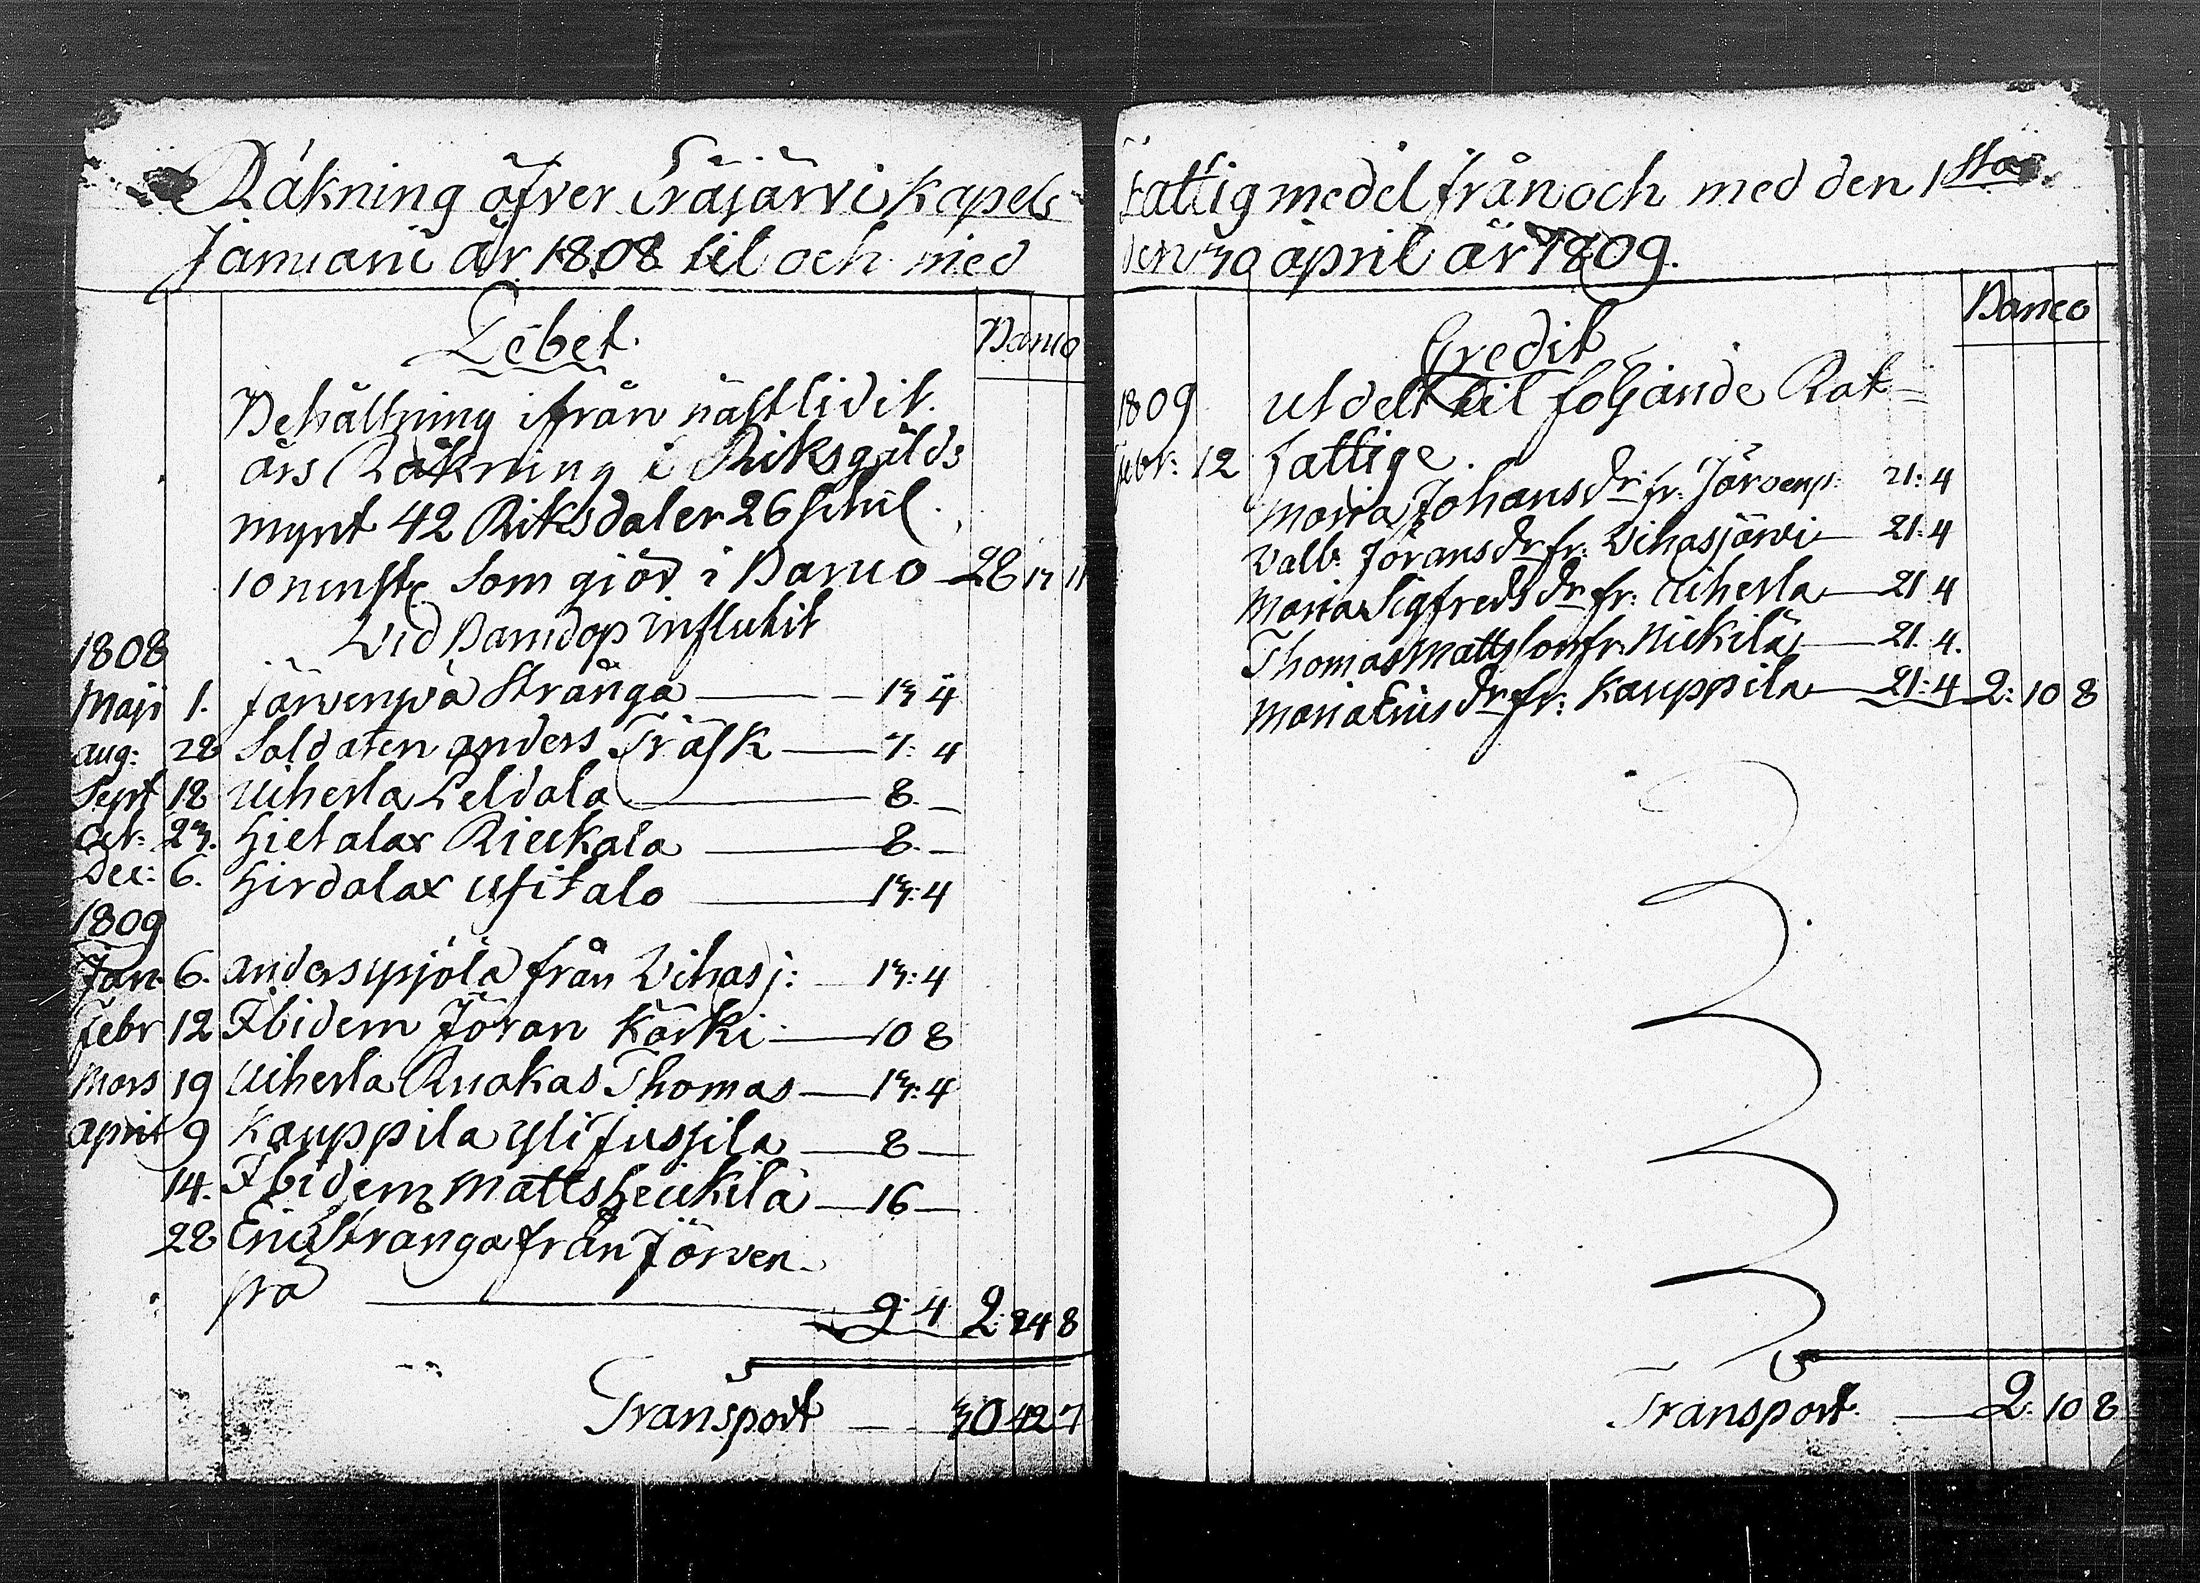 Räkning öfver Träjärvi Kapels
Januarii år 1808 til och med
Debet.
Banco
Behållning ifrån nästlidit.
års Räkning i Riksgälds
mynt 42 Riksdaler 26 schil.
10 runst: som giör i Banco 28 17 11
Vid Barndop influtit
1808
Maji 1. Järvenpä Stränga — 13 4
aug: 28 Soldaten anders Träsk — 7: 4
Sept 18 Uiherla Peldola — 8. —
Oct: 23. Hietalax Rieckala — 8. —
Dec: 6. Hirdalax Ufitalo — 13: 4
1809
Jan. 6. anders ypjölä från Vihasj: — 13: 4
Febr 12 Ibidem Jöran Kärki — 10 8
Mars 19 Uiherla Ruokas Thomas — 13: 4
april 9 Kauppila Yli Jussila — 8 —
14. Ibidem Matts Heickilä — 16 —
28 Eric Stränga från Järven
pä — 9: 4 2: 24 8
Transport — 30 42 7
Fattigmedel från och med den 1 sta
den 30 april år 1809.
Credit
Banco
1809 utdelt til följande Rot=
Febr: 12 fattige.
Maria Johansdr fr: Järvenp: 21: 4
Valb: Jöransdr fr: Vihasjärvi — 21: 4
Maria Sigfredsdr fr: Uiherla — 21 4
Thomas Mattsson fr: Nickilä — 21. 4.
Maria Ericsdr fr: Kauppila — 21: 4 2: 10 8
Transport. — 2: 10 8